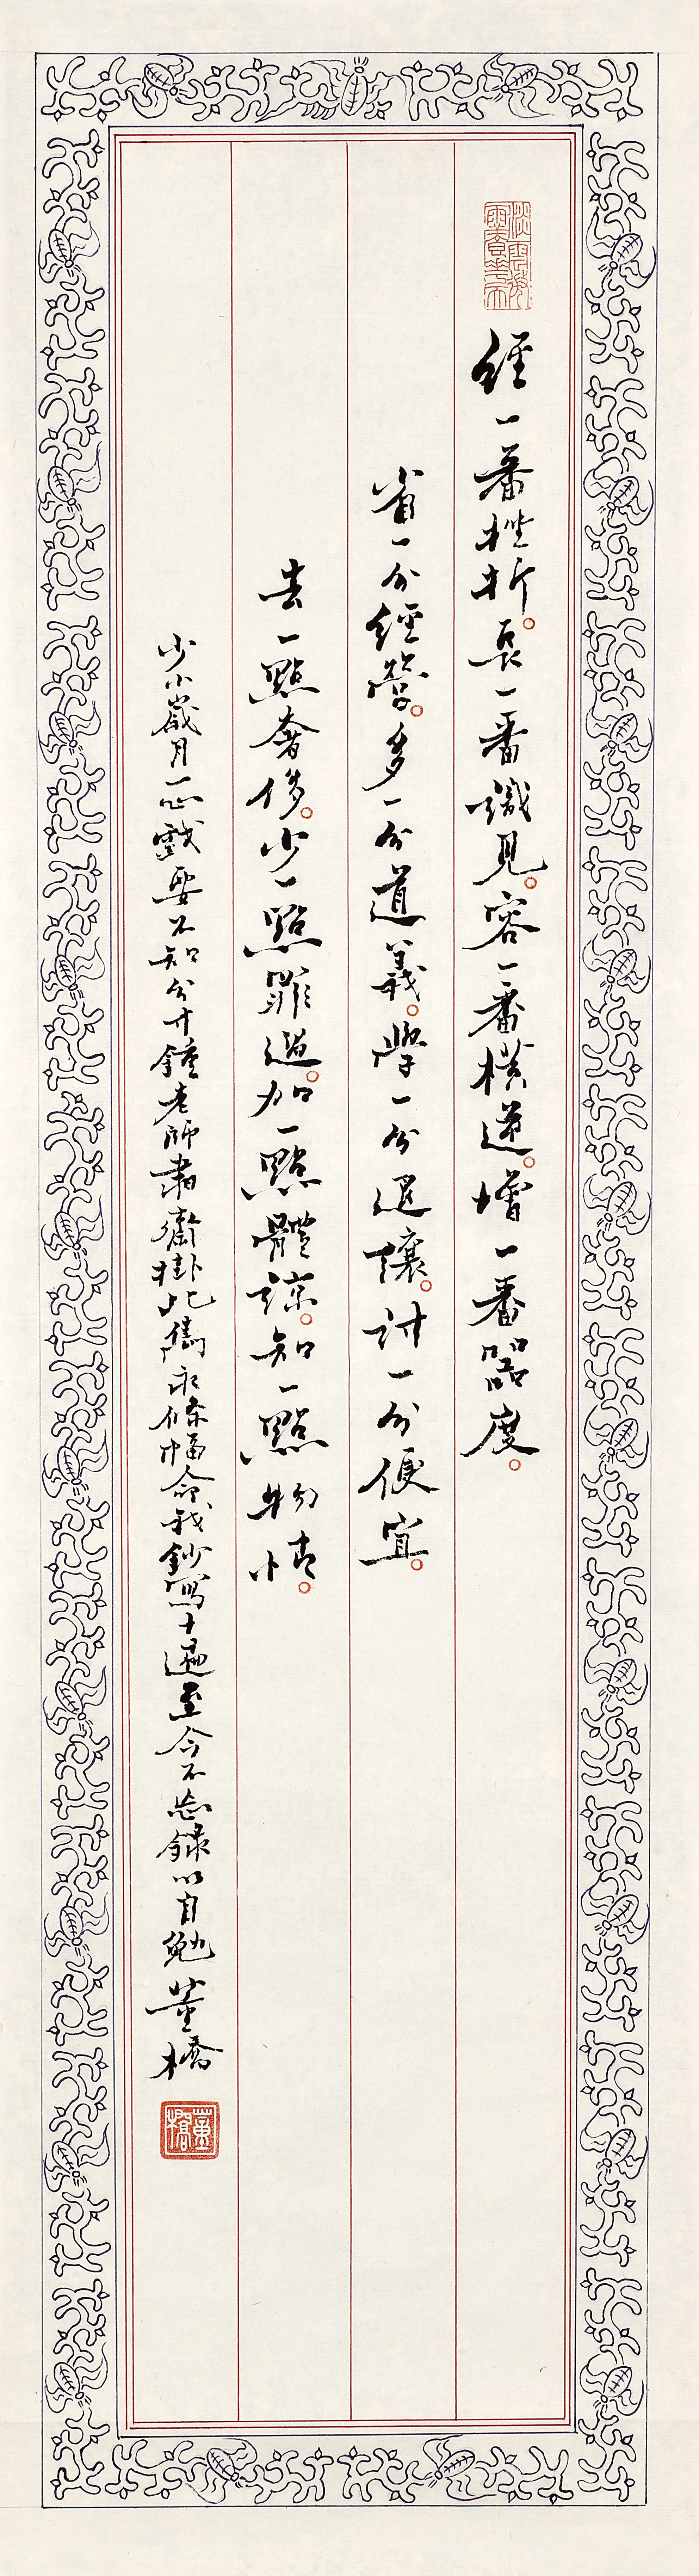 經一番挫折。長一番識見。容一番橫逆。增一番器度。
省一分經營。多一分道義。學一分退讓。討一分便宜。
去一點奢侈。少一點罪過。加一點體諒。知一點物情。
少小歲月一心戲耍不知分寸鍾老師書齋掛此雋永條幅命我鈔寫十遍至今不忘錄以自勉 董橋
董橋